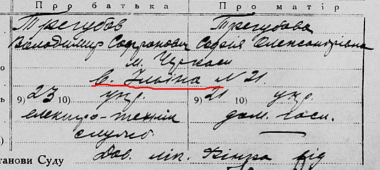 Про батька Про матір
Трегубов Трегубова
Володимир Сафронович Софія Олександрівна
м. Черкаси
в. Ільїна N 21
9) 23 10) укр. 9) 21 10) укр.
електро-технік дом. госп.
службо
танови Суду Дов. лік. від